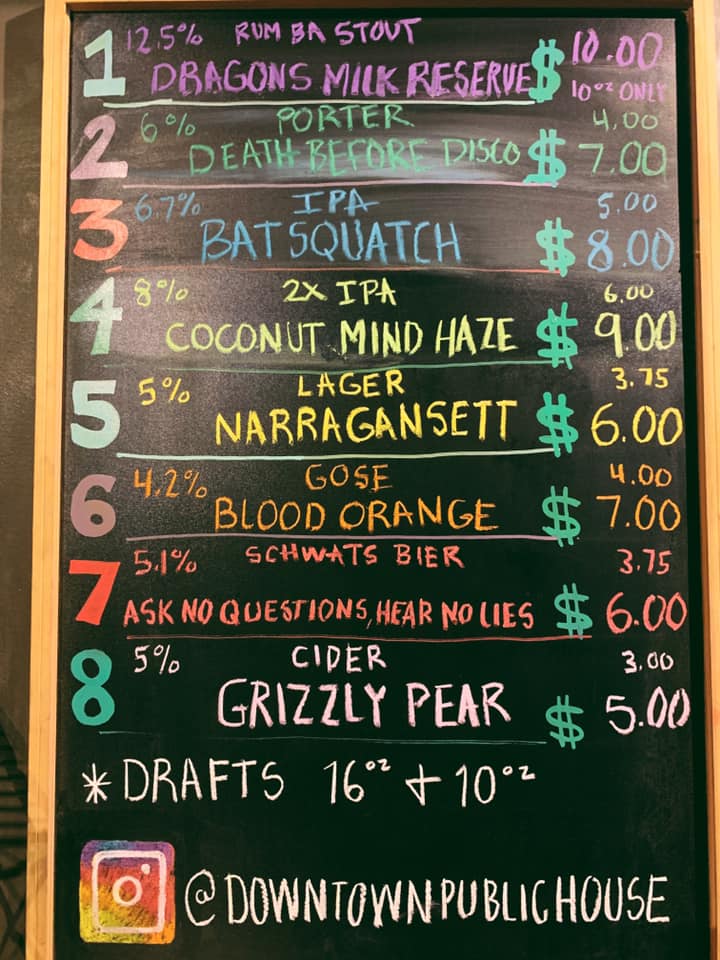 1 12.5% RUM BA STOUT 10.00
DRAGONS MILK RESERVE $ 10oz ONLY
2 6% PORTER 4.00
DEATH BEFORE DISCO $ 7.00
3 6.7% IPA 5.00
BATSQUATCH $ 8.00
4 8% 2X IPA 6.00
COCONUT MIND HAZE $ 9.00
5 5% LAGER 3.75
NARRAGANSETT $ 6.00
6 4.2% GOSE 4.00
BLOOD ORANGE $ 7.00
7 5.1% SCHWATS BIER 3.75
ASK NO QUESTIONS, HEAR NO LIES $ 6.00
8 5% CIDER 3.00
GRIZZLY PEAR $ 5.00
* DRAFTS 16oz + 10oz
@DOWNTOWNPUBLICHOUSE